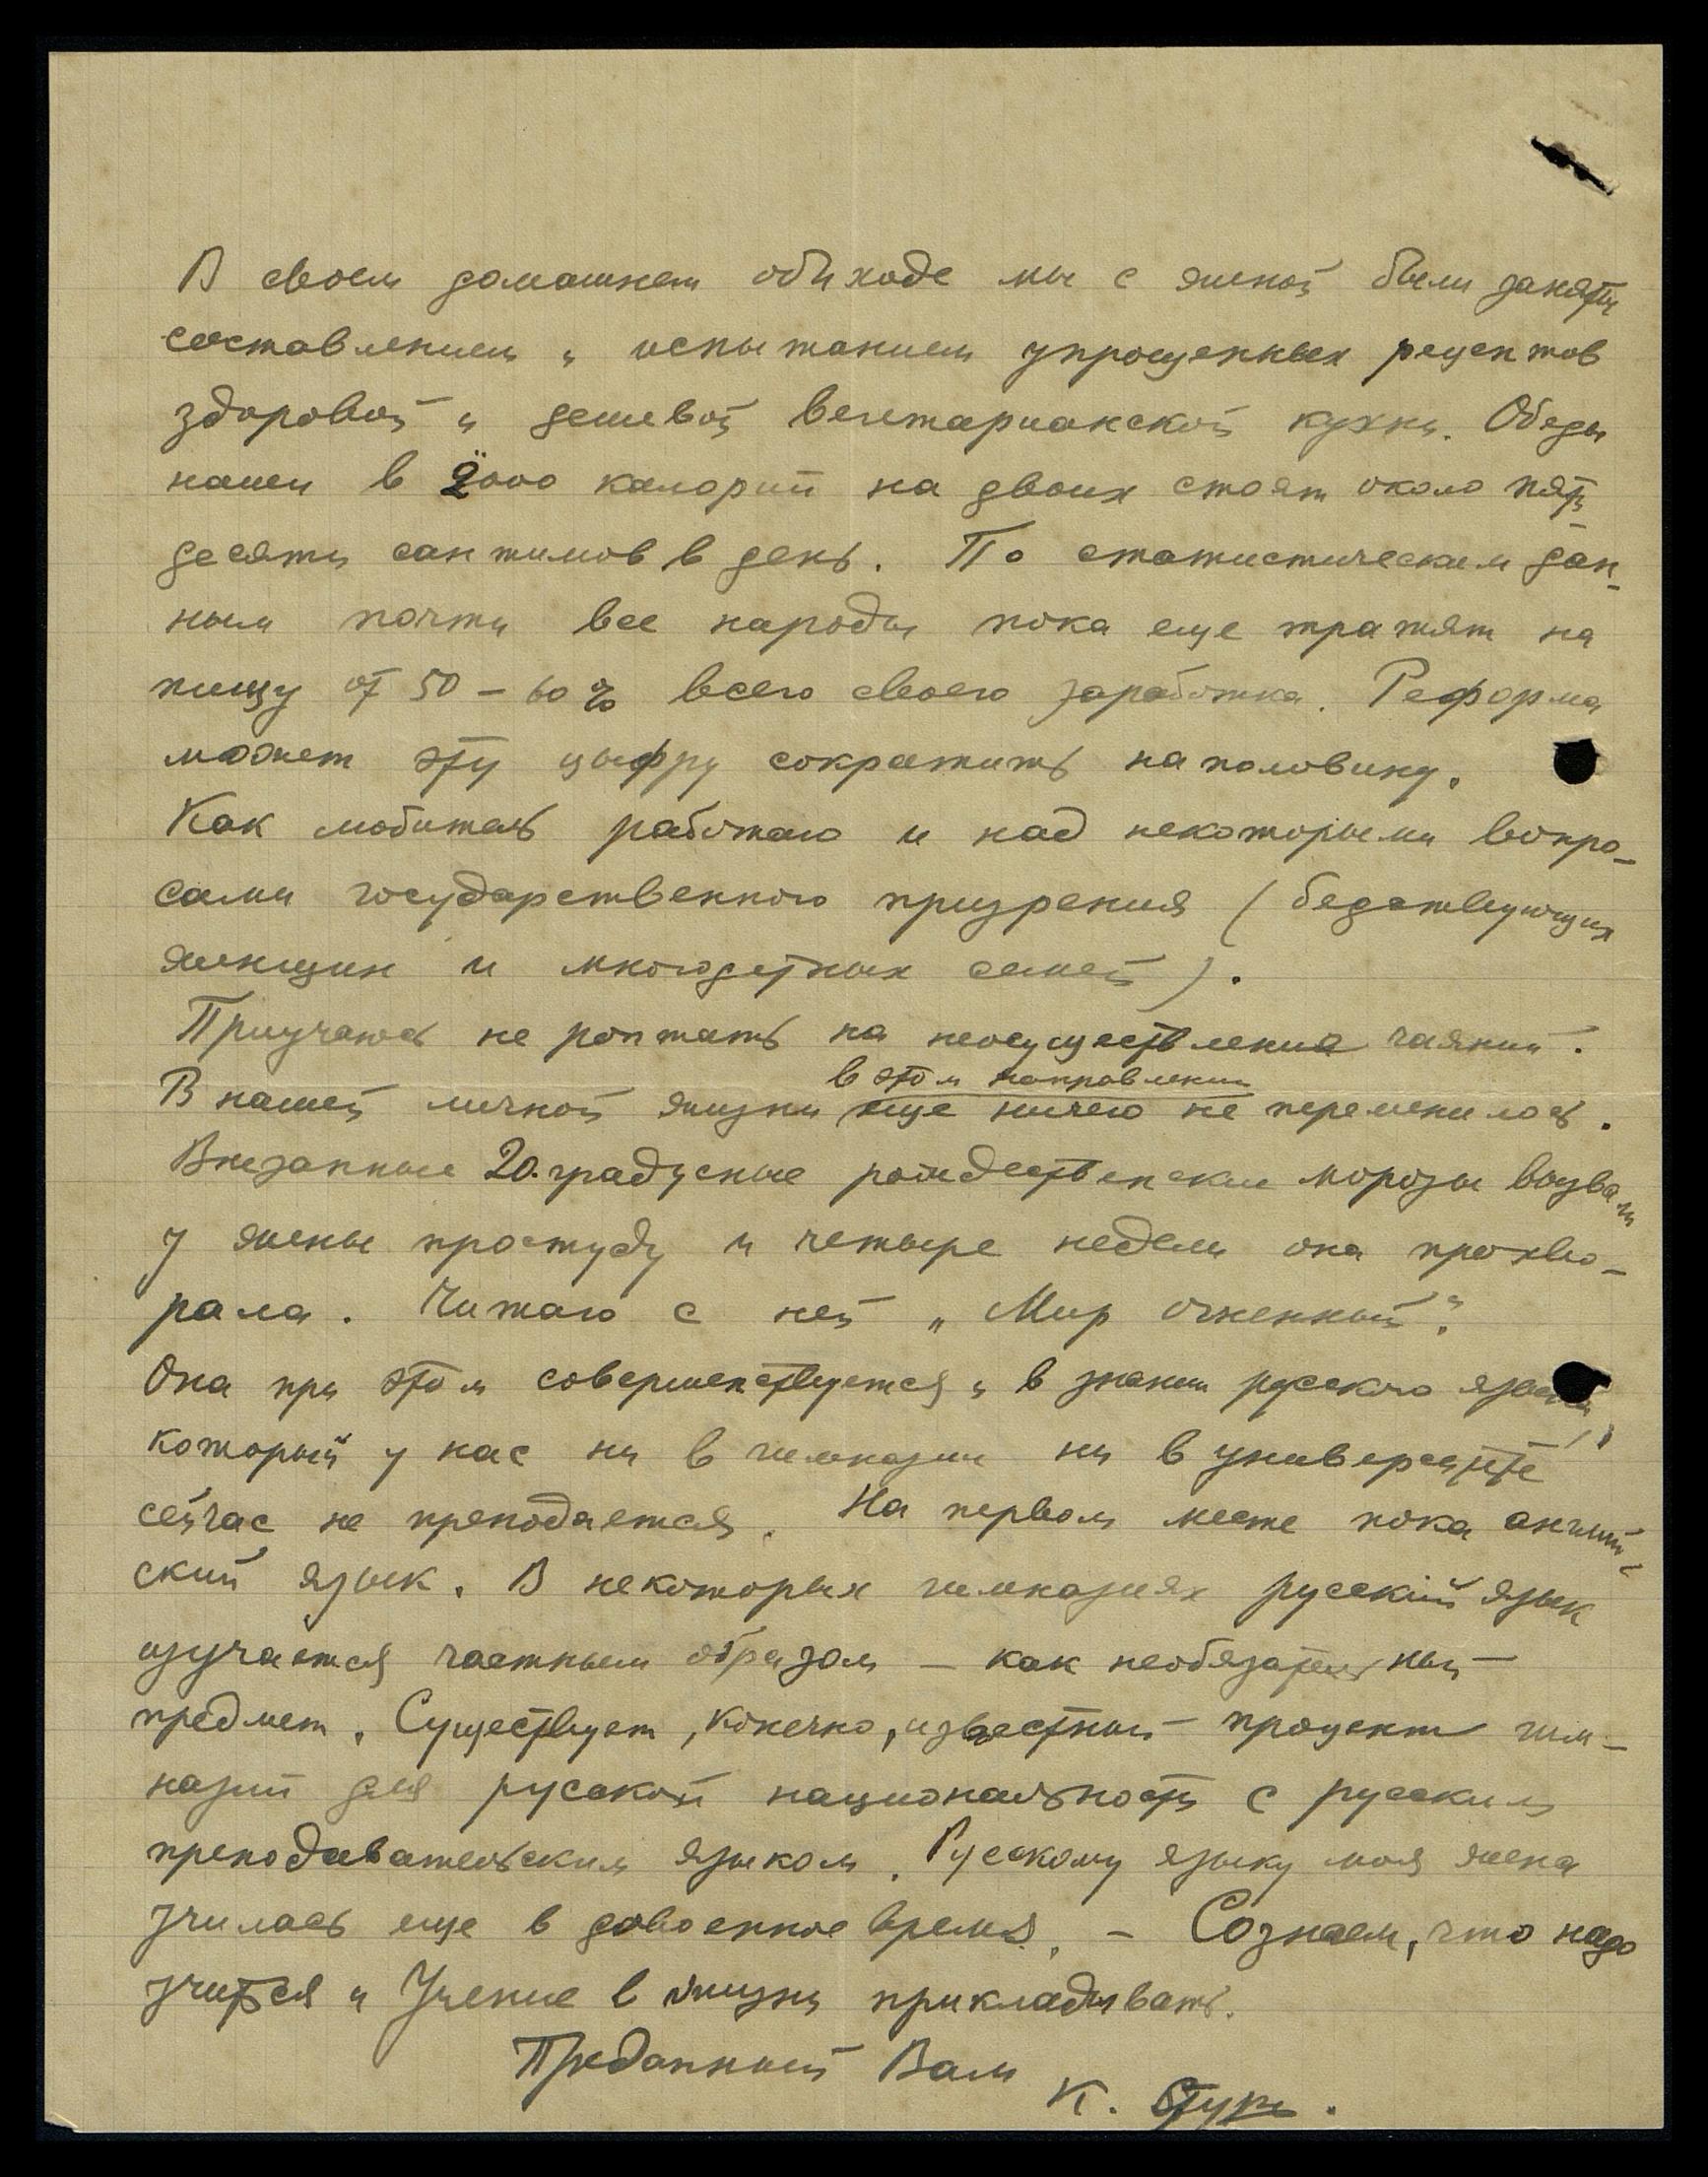 В своем домашнем обиходе мы с женой были заняты
составлением и испытанием упрощенных рецептов
здоровой и дешевой вегетарианской кухни. Обеды
наши в 2000 калорий на двоих стоят около пяти-
десяти сантимов в день. По статистическим дан-
ным почти все народы пока еще тратят на
пищу от 50 – 60 % всего своего заработка. Реформа
может эту цыфру сократить наполовину.
Как любитель работаю и над некоторыми вопро-
сами государственного призрения (бедствующих
женщин и многодетных семей).
Приучаюсь не роптать на неосуществление чаяний.
в этом направлении
В нашей личной жизни еще ничего не переменилось.
Внезапные 20.градусные рождественские морозы вызвали
у жены простуду и четыре недели она прохво-
рала. Читаю с ней „Мир Огненный“.
Она при этом совершенствуется и в знании русского языка,
который у нас ни в гимназии ни в университете
сейчас не преподается. На первом месте пока англий-
ский язык. В некоторых гимназиях русский язык
изучается частным образом – как необязательный
предмет. Существует, конечно, известный процент гим-
назий для русской национальности с русским
преподавательским языком. Русскому языку моя жена
училась еще в довоенное время. – Сознаем, что надо
учиться и Учение в жизни прикладывать.
Преданный Вам
К. Стуре.